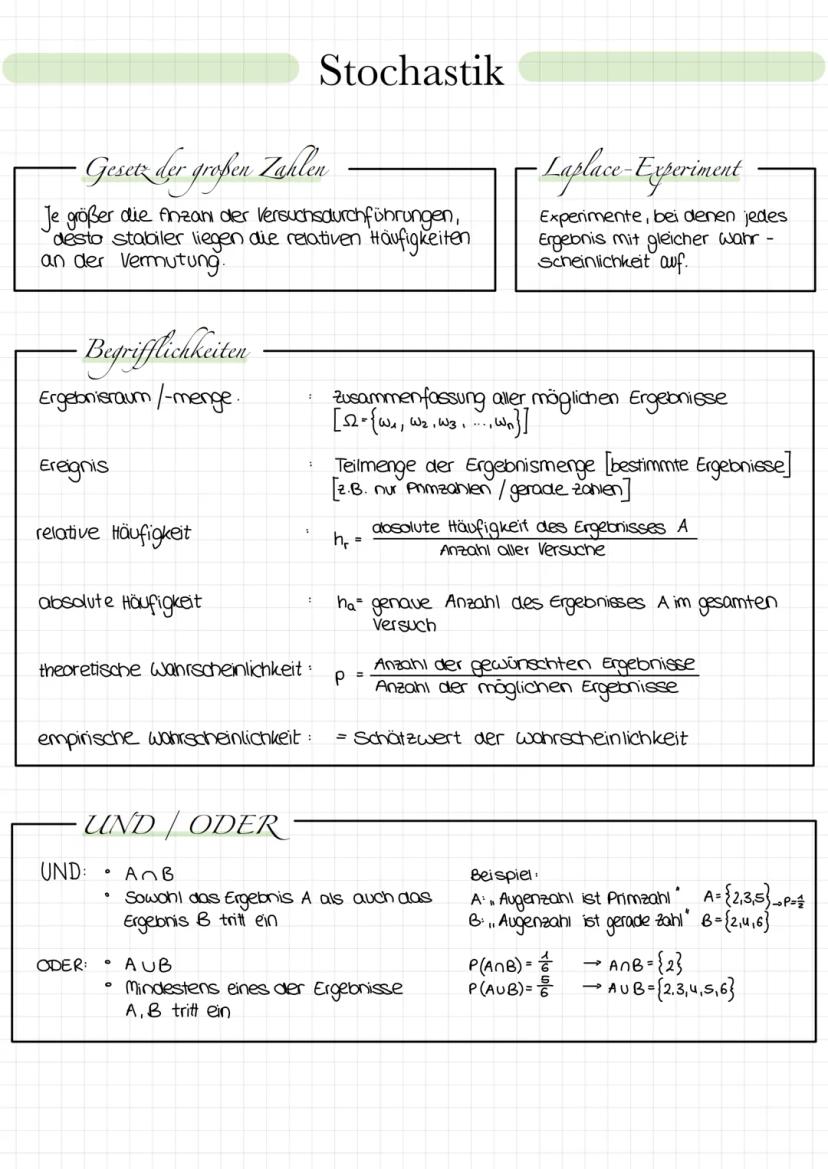 Stochastik
Gesetz der großen Zahlen
Je größer die Anzahl der Versuchsdurchführungen,
desto stabiler liegen die relativen Häufigkeiten
an der Vermutung.
Laplace-Experiment
Experimente, bei denen jedes
Ergebnis mit gleicher Wahr -
scheinlichkeit auf.
Begrifflichkeiten
Ergebnisraum /-menge. : Zusammenfassung aller möglichen Ergebnisse
[Ω={ω₁, ω₂, ω₃, ..., ωₙ}]
Ereignis : Teilmenge der Ergebnismenge [bestimmte Ergebnisse]
[z.B. nur Primzahlen / gerade Zahlen]
relative Häufigkeit : hᵣ = absolute Häufigkeit des Ergebnisses A
Anzahl aller Versuche
absolute Häufigkeit : hₐ= genaue Anzahl des Ergebnisses A im gesamten
Versuch
theoretische Wahrscheinlichkeit : p = Anzahl der gewünschten Ergebnisse
Anzahl der möglichen Ergebnisse
empirische Wahrscheinlichkeit : = Schätzwert der Wahrscheinlichkeit
UND / ODER
UND: • A∩B
• Sowohl das Ergebnis A als auch das
Ergebnis B tritt ein
ODER: • A∪B
• Mindestens eines der Ergebnisse
A, B tritt ein
Beispiel:
A: „Augenzahl ist Primzahl" A={2,3,5}→P=½
B: „Augenzahl ist gerade Zahl" B={2,4,6}
P(A∩B)= 1/6 → A∩B={2}
P(A∪B)= 5/6 → A∪B={2,3,4,5,6}